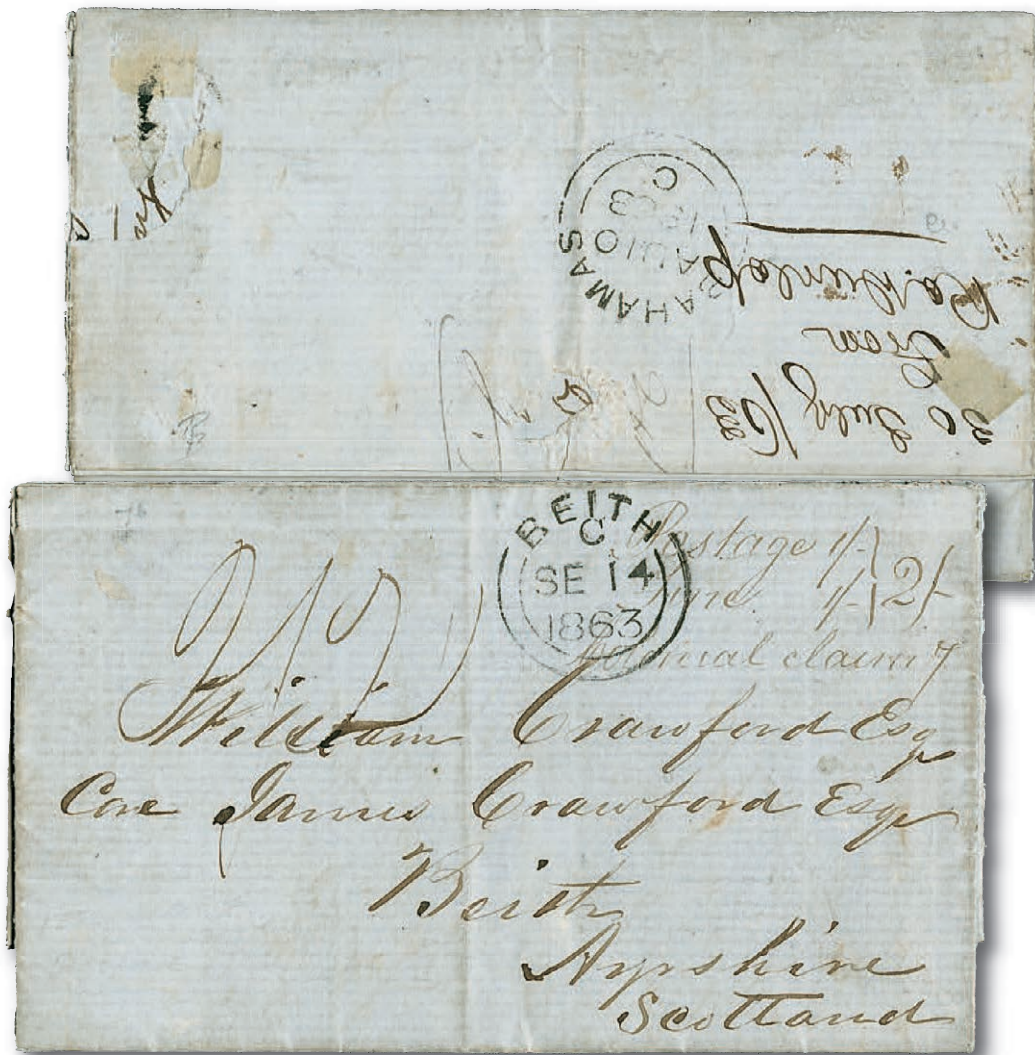 BAHAMAS
C
AU 10
1863
30 July /63
From
Ro. Dunlop
BEITH
C
SE 14
1863
Postage 1/-
Fine 1/- 2/-
Colonial claim 7
William Crawford Esq
Care James Crawford Esq
Beith
Ayrshire
Scotland